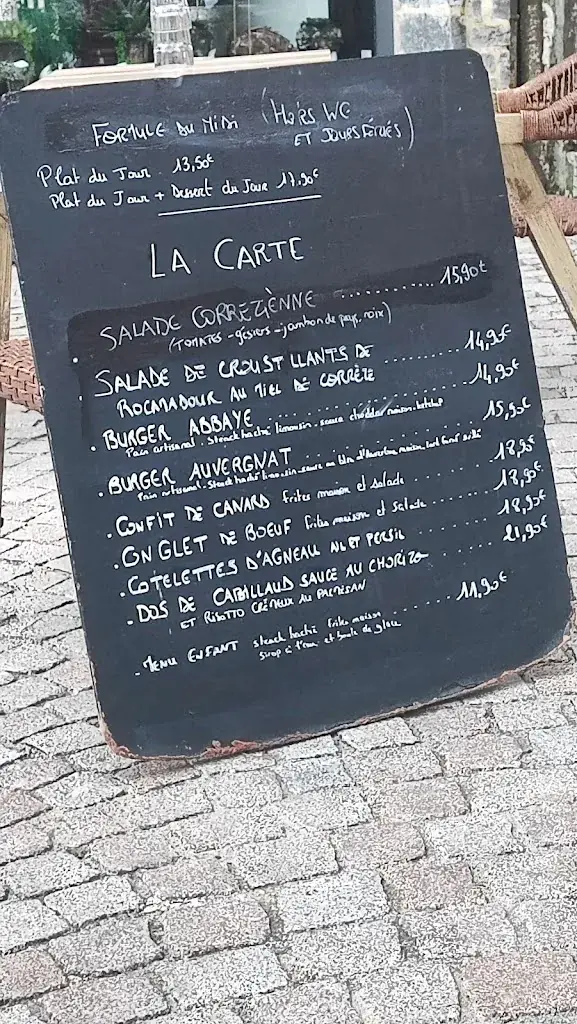 FORMULE DU MIDI (HORS WE
ET JOURS FÉRIÉS)
Plat du Jour 13,50€
Plat du Jour + Dessert du Jour 17,90€
LA CARTE
• SALADE CORREZIÈNNE .......... 15,90€
(TOMATES - gésiers - jambon de pays, noix)
• SALADE DE CROUSTILLANTS DE ........ 14,90€
ROCAMADOUR AU MIEL DE CORRÈZE
• BURGER ABBAYE ........ 14,90€
Pain artisanal. Steack haché limousin. sauce cheddar maison. ketchup
• BURGER AUVERGNAT ........ 15,90€
Pain artisanal. Steack haché limousin. sauce au bleu d'Auvergne maison, lard fumé grillé
• CONFIT DE CANARD frites maison et salade 18,90€
• ONGLET DE BOEUF frites maison et salade 18,90€
• COTELETTES D'AGNEAU AIL ET PERSIL 18,90€
• DOS DE CABILLAUD SAUCE AU CHORIZO ...... 21,90€
ET RISOTTO CRÉMEUX AU PARMESAN
• MENU ENFANT steack haché frites maison ........ 11,90€
sirop à l'eau et boule de glace